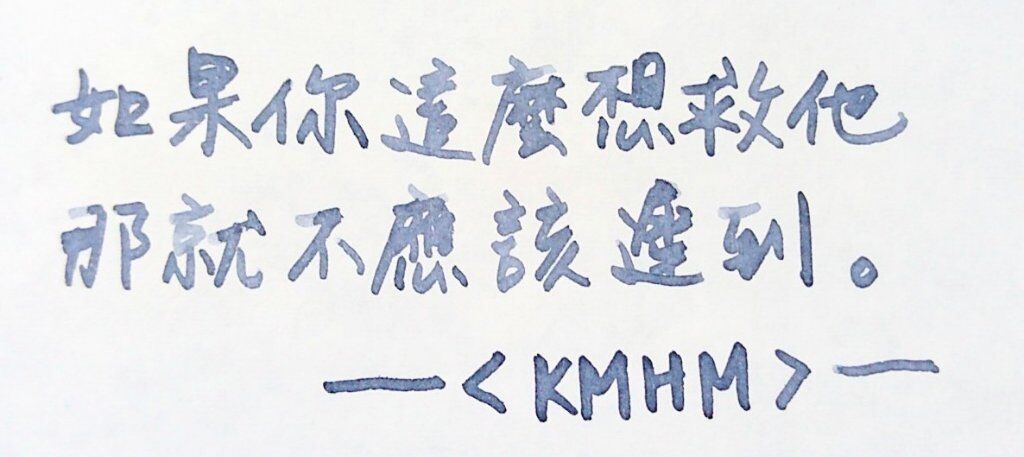 如果你這麼想救他
那就不應該遲到。
—<KMHM>—